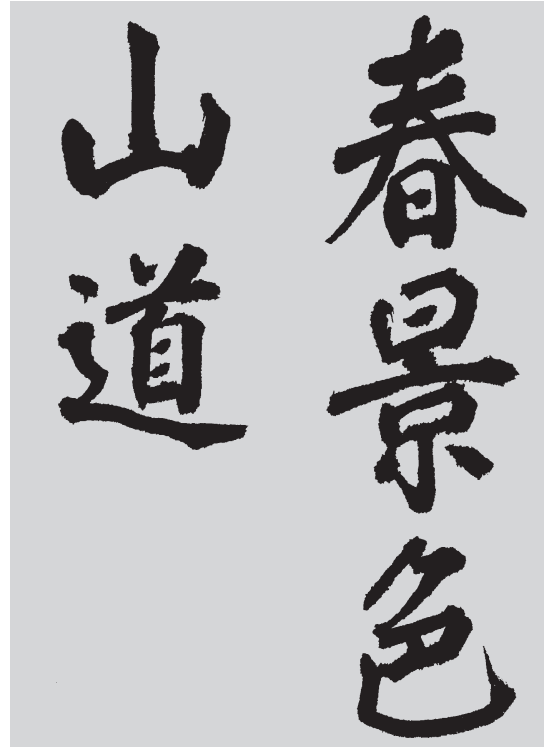 春景色
山道